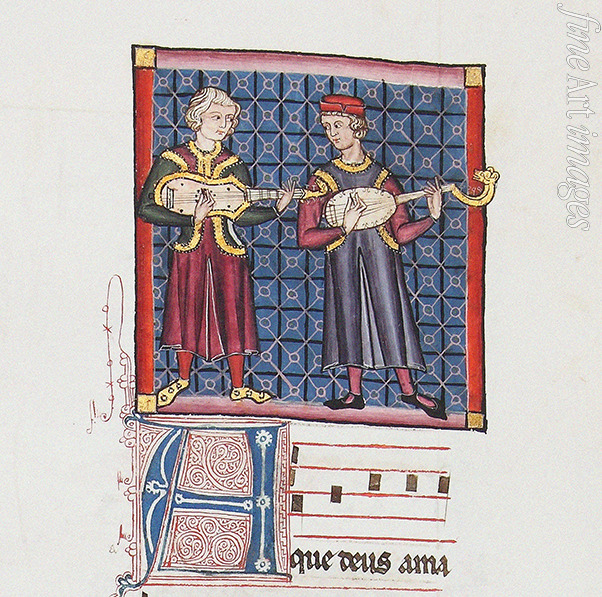 fineArtimages
A
que deus ama